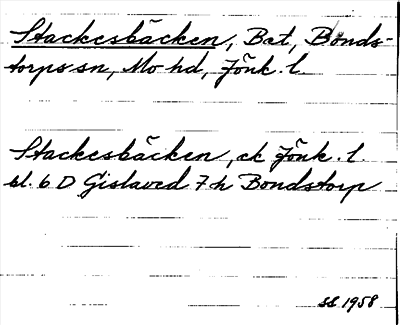 Stackesbäcken, Bæt, Bonds-
torps sn, Mo hd, Jönk. l.
Stackesbäcken, ek Jönk. l.
bl. 6 D Gislaved 7 h Bondstorp
SS 1958